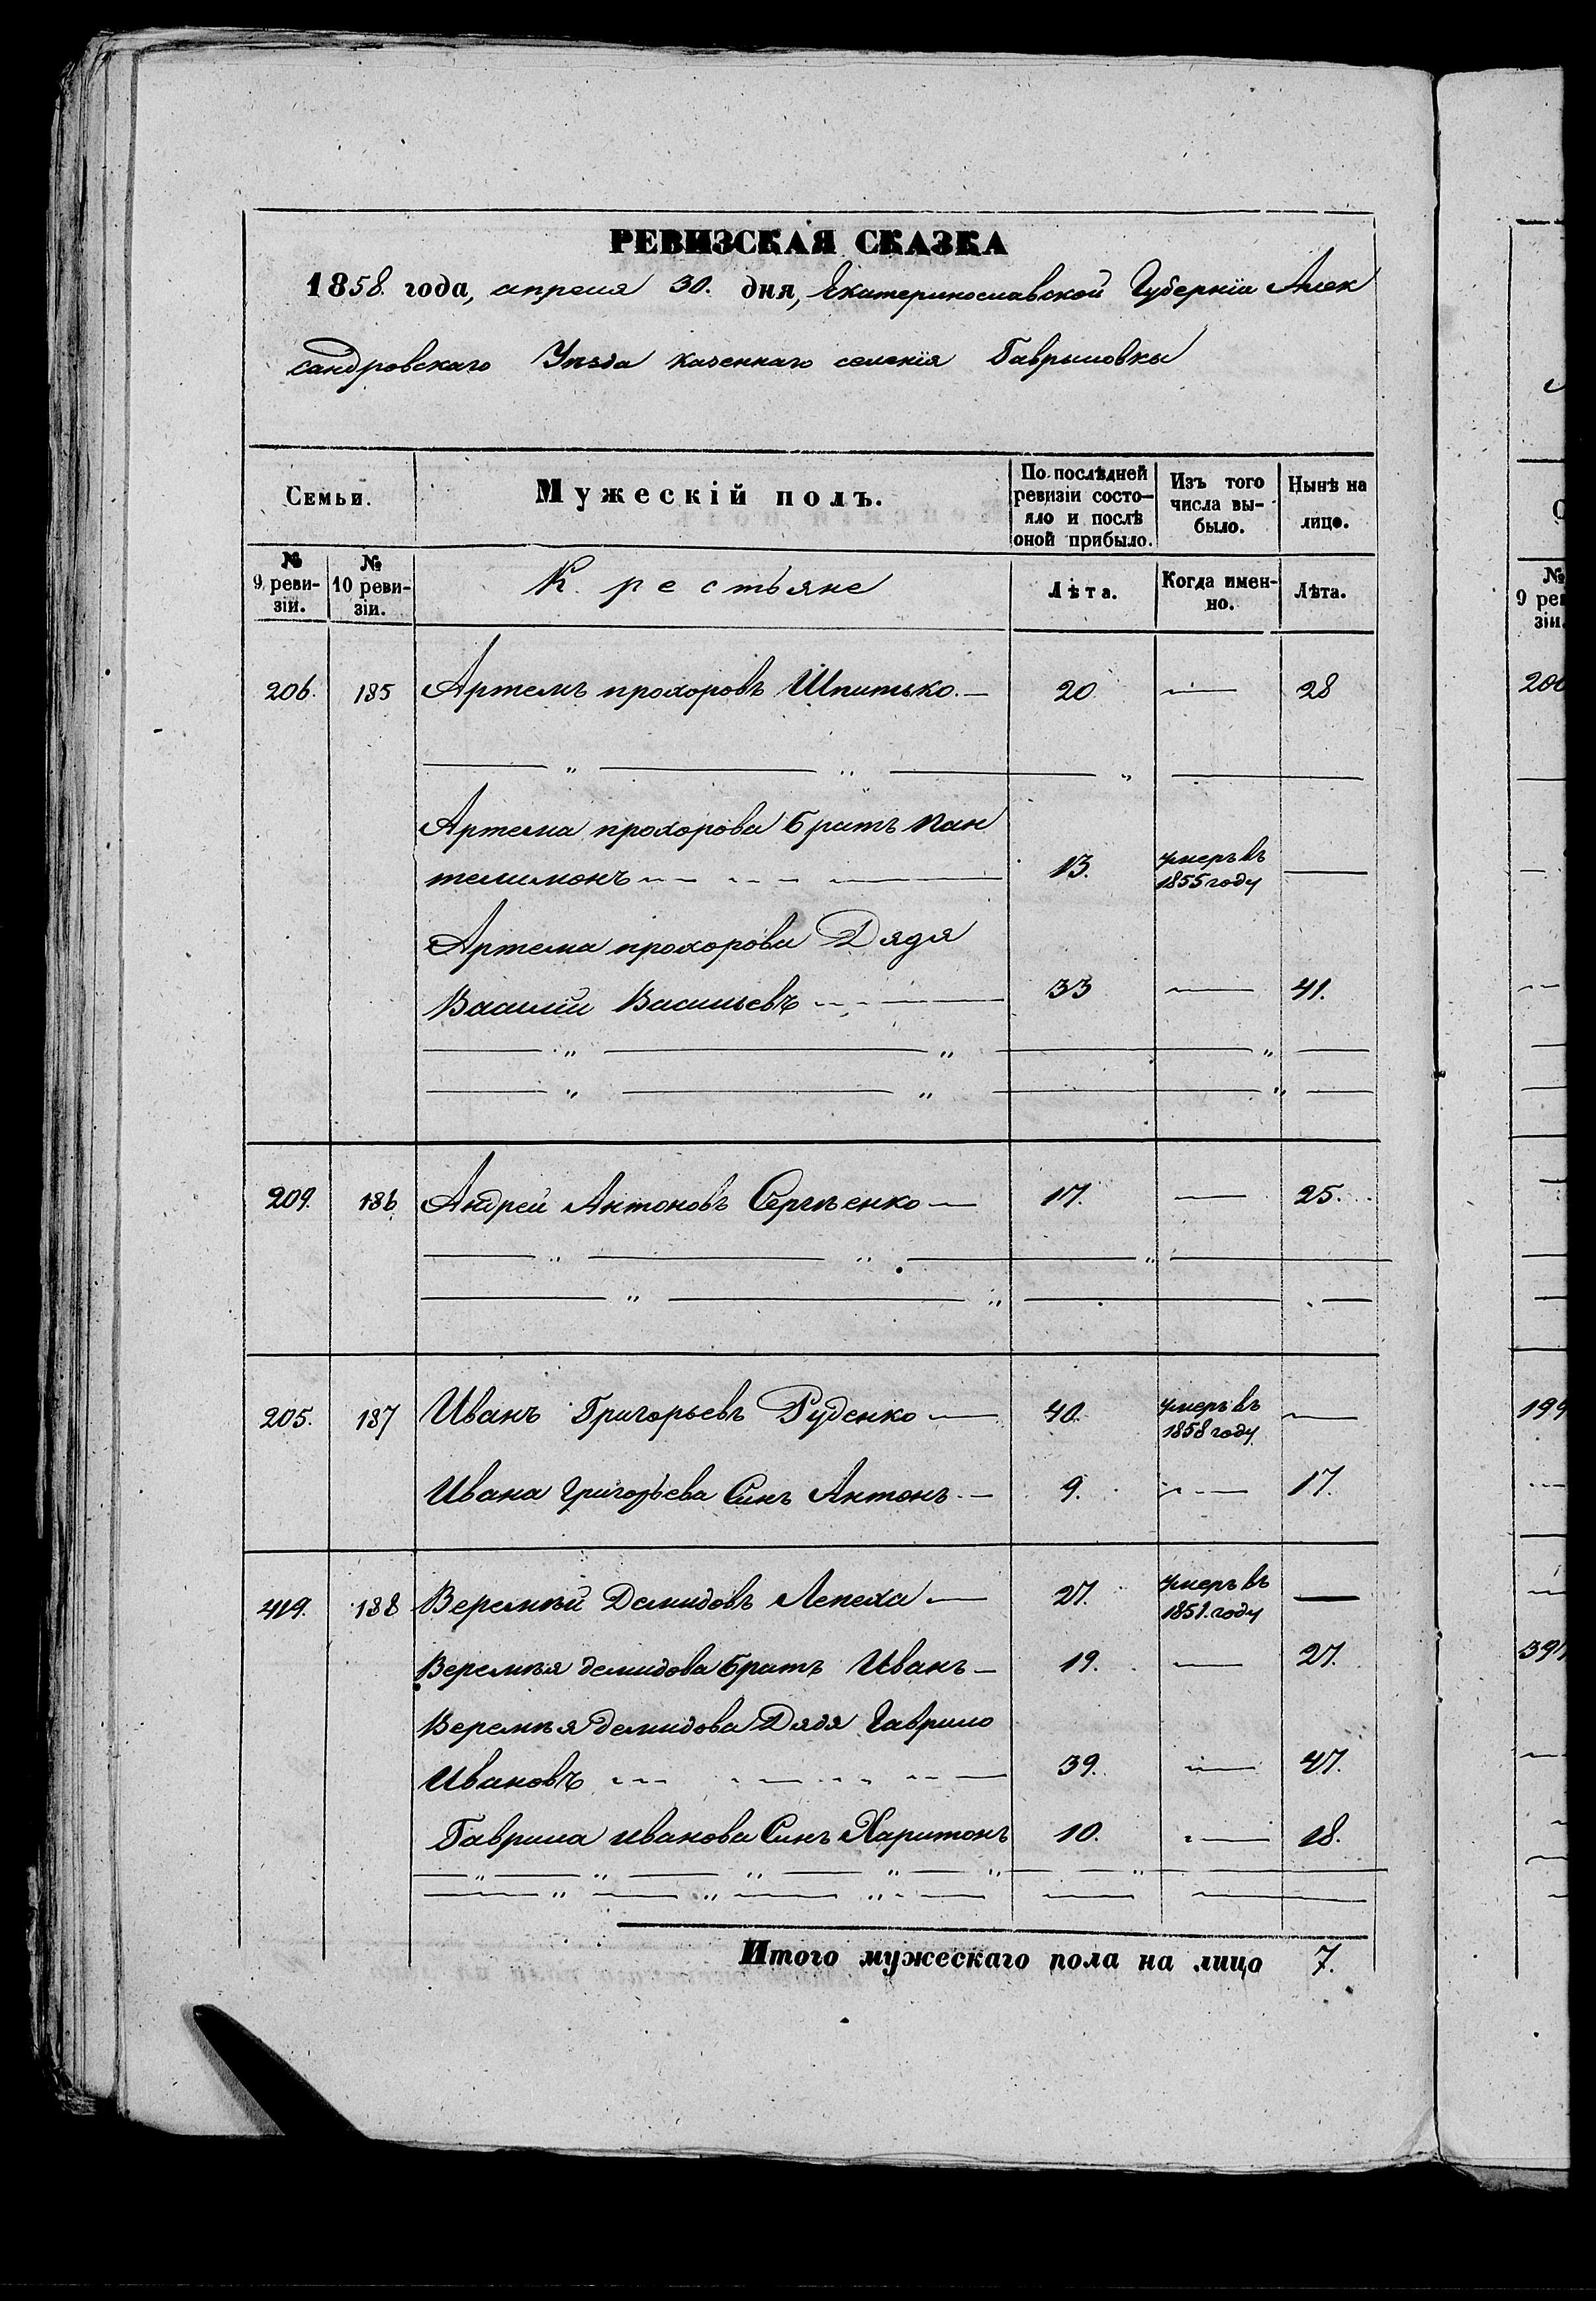 РЕВИЗСКАЯ СКАЗКА
1858. года, апреля 30. дня, Екатеринославской Губернїи Алек
сандровскаго Уѣзда казеннаго селенїя Гаврыловки
Семьи.
Мужескій полъ.
По послѣдней ревизіи состо-
яло и послѣ оной прибыло.
Изъ того числа вы-
было.
Нынѣ на лицо.
№ 9 реви-
зіи.
№ 10 реви-
зіи.
Крестьяне
Лѣта.
Когда имен-
но.
Лѣта.
206. 185 Артемъ прохоровъ Шпитько. — 20 — 28
Артема прохорова братъ пан
телимонъ — 13. умеръ въ 1855 году —
Артема прохорова Дядя
Василий Васильевъ — 33 — 41.
209. 186 Андрей Антоновъ Сергѣенко — 17. — 25.
205. 187 Иванъ Григорьевъ Руденко — 40. умеръ въ 1858 году —
Ивана Григорьева Синъ Антонъ — 9. — 17.
419. 188 Веремѣй Демидовъ Лепеха — 27. умеръ въ 1851. году —
Веремѣя демидова братъ Иванъ — 19. — 27.
Веремѣя демидова Дядя Гаврило
Ивановъ — 39. — 47.
Гаврила иванова Синъ Харитонъ 10. — 18.
Итого мужескаго пола на лицо 7.
№ 9 рев
зіи.
199